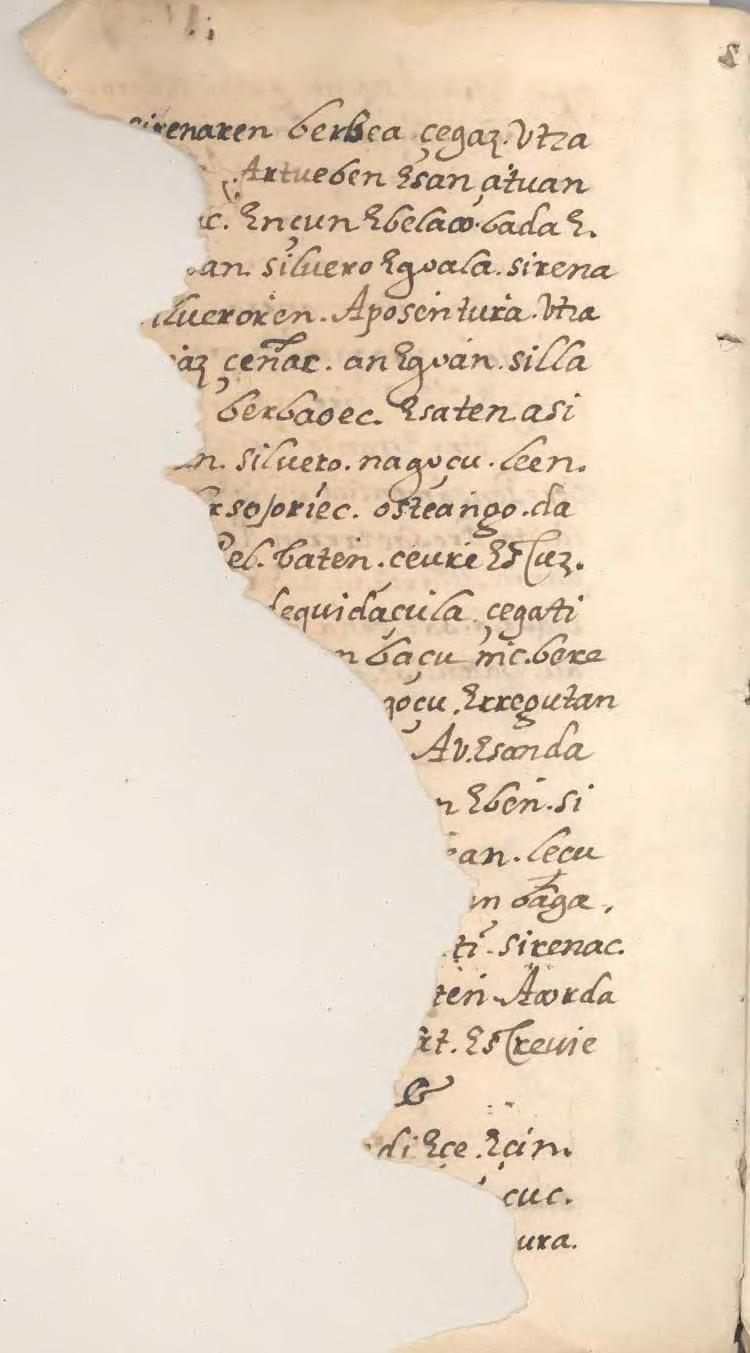 sirenaren berbea çegaz. Vtra
Artueben Esan atuan
c. Ençun Ebelaco. bada E.
an. siluero Egoala. sirena
lueroren. Aposentura. Vtra
az çeñac. an Egoan. silla
berbaoec. Esaten asi
n. siluero. nagoçu. leen.
rso/oriec. osteango. da
el. baten. ceure Escuz.
lequidaçula çegati
n baçu nic. bere
goçu. Erregutan
Au. Esanda
n Eben. si
ean. leçu
n baga,
ti. sirenac.
ten. Acorda
rt. Escreuie
&
di Eçe. Eçin.
cuc.
ura.